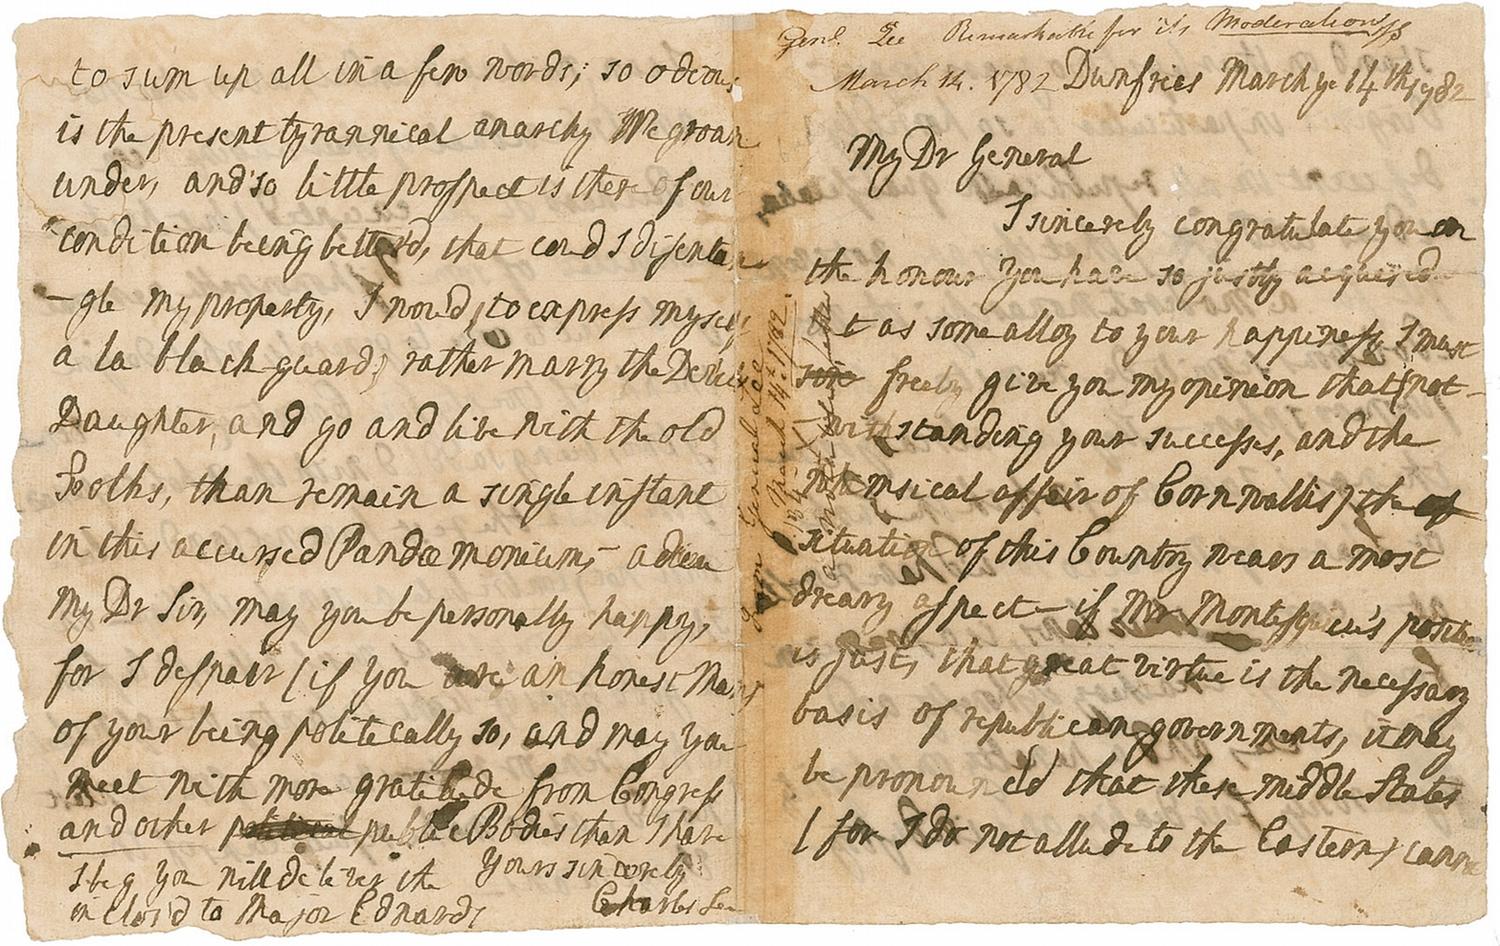 to sum up all in a few words; so odious
is the present tyrannical anarchy We groan
under, and so little prospect is there of our
condition being better'd, that coud I disentan
-gle my property, I woud, to express myself
a la black guard, rather marry the Devil's
Daughter, and go and live with the old
Folks, than remain a single instant
in this accursed Pandæmonium, - adieu
My Dr Sir, may you be personally happy,
for I despair (if you are an honest Man)
of your being politically so, and may you
meet with more gratitude from Congress
and other public Bodies than I have
Yours sincerely
Charles Lee
I beg you will deliver the
inclos'd to Major Edwards
From General Lee
14th March 1782.
Genl. Lee Remarkable for its Moderation
March 14. 1782
Dumfries March ye 14th 1782
My Dr General
I sincerely congratulate you on
the honour you have so justly acquired
but as some alloy to your happiness, I must
freely give you my opinion that (not-
-withstanding your successes, and the
whimsical affair of Cornwallis) the of
situation of this Country wears a most
dreary aspect - if Mr Montesquieu's position
is just, that great virtue is the necessary
basis of republican governments, it may
be pronounc'd that these middle States
(for I do not allude to the Eastern) cannot